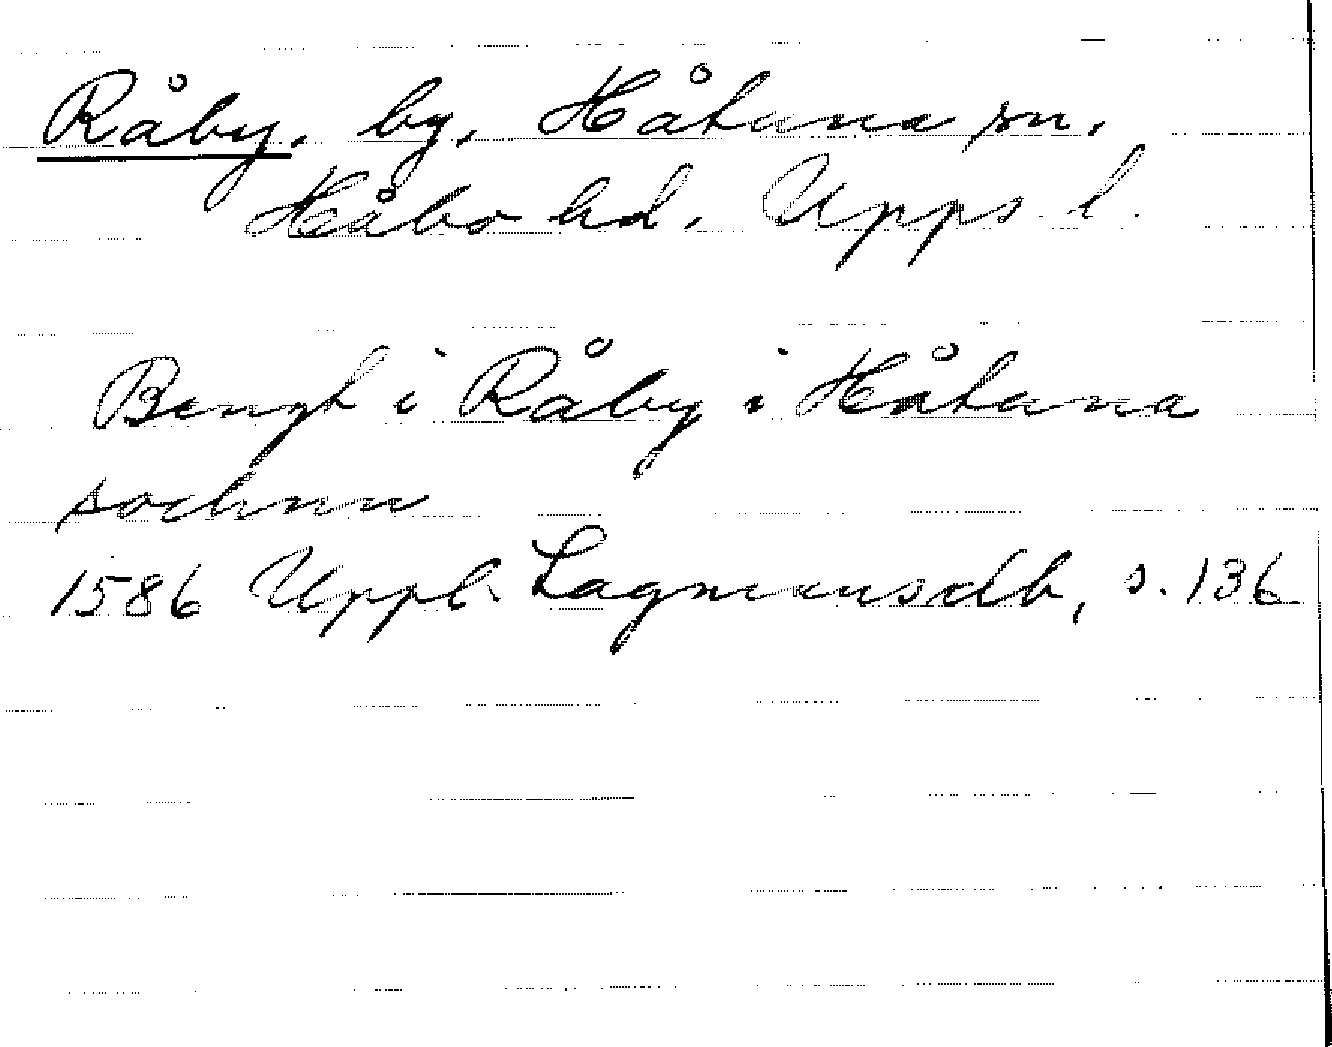 Råby, by, Håtuna sn.
Håbo hd. Upps. l.
Bengt i Råby i Håtuna
sochnn
1586 Uppl. Lagmansdb, s. 136